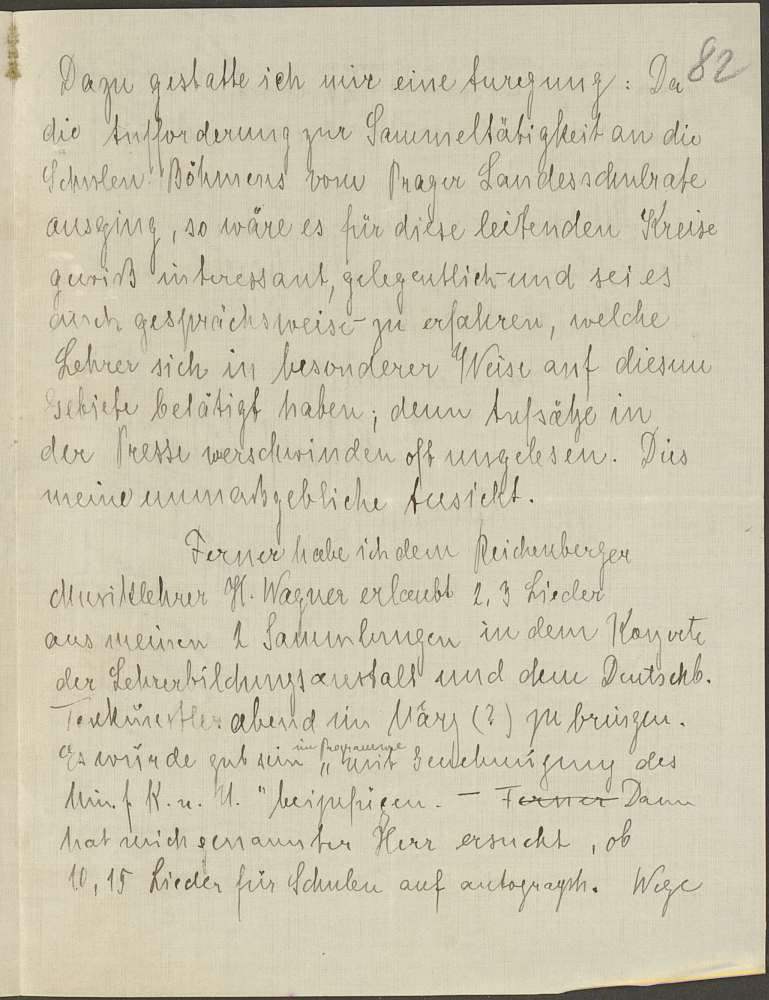 82
Dazu gestatte ich mir eine Anregung: Da
die Aufforderung zur Sammeltätigkeit an die
Schulen Böhmens vom Prager Landesschulrate
ausging, so wäre es für diese leitenden Kreise
gewiß interessant, gelegentlich und sei es
auch gesprächsweise zu erfahren, welche
Lehrer sich in besonderer Weise auf diesem
Gebiete betätigt haben; denn Aufsätze in
der Presse verschwinden oft ungelesen. Dies
meine unmaßgebliche Ansicht.
Ferner habe ich dem Reichenberger
Musiklehrer H. Wagner erlaubt 2, 3 Lieder
aus meinen 2 Sammlungen in dem Konzerte
der Lehrerbildungsanstalt und dem Deutschb.
Tonkünstlerabend im März (?) zu bringen.
Es würde gut sein im Programme "mit Genehmigung des
Min. f. K. u. U." beizufügen. – Ferner Dann
hat mich genannter Herr ersucht, ob
10, 15 Lieder für Schulen auf autograph. Wege